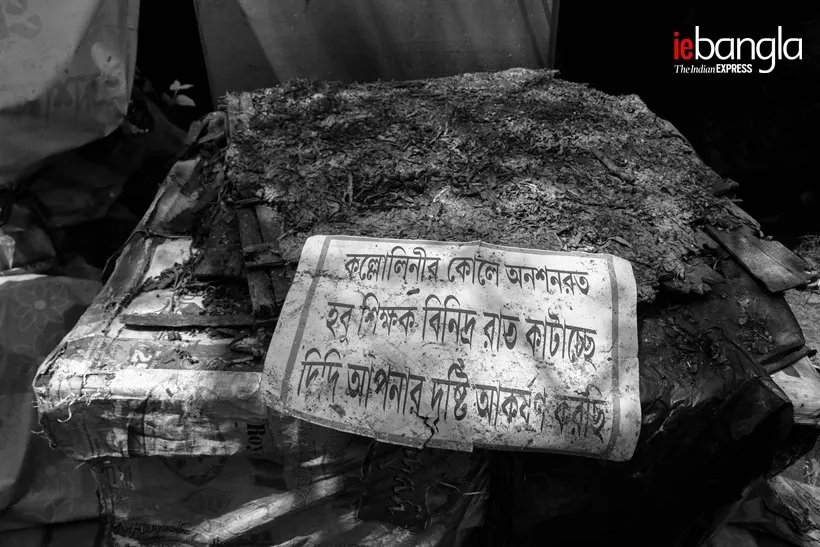 iebangla
The Indian EXPRESS
কল্লোলিনীর কোলে অনশনরত
হবু শিক্ষক বিনিদ্র রাত কাটাচ্ছে
দিদি আপনার দৃষ্টি আকর্ষণ করছি